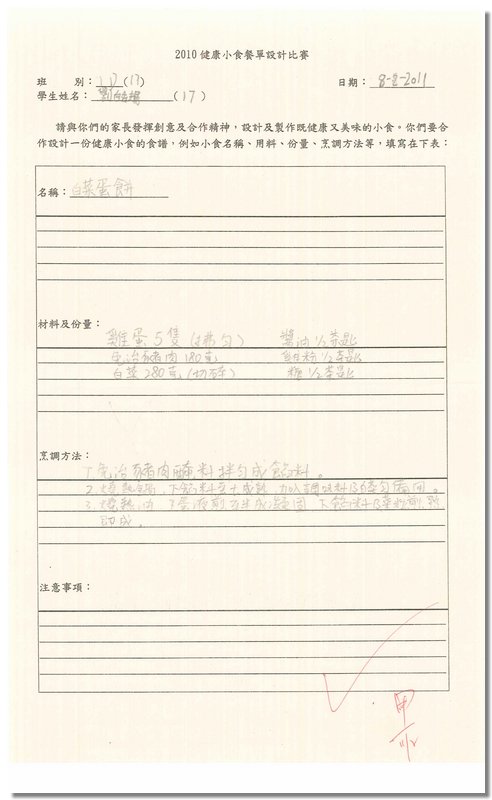 2010 健康小食餐單設計比賽
班 別：1D (17) 日期：8-2-2011
學生姓名： (17)
請與你們的家長發揮創意及合作精神，設計及製作既健康又美味的小食。你們要合
作設計一份健康小食的食譜，例如小食名稱、用料、份量、烹調方法等，填寫在下表：
名稱：白菜蛋餅
材料及份量：
雞蛋5隻(拂勻) 醬油 1/2 茶匙
免治豬肉 180克 粉 1/2 茶匙
白菜 280克(切碎) 糖 1/2 茶匙
烹調方法：
1. 免治豬肉醃料拌勻成餡料。
2. 燒熱鑊，下餡料至七成熟，加入調味料及炒勻備用。
3. 燒熱油，下蛋液煎成半凝固，下餡料及菜粒煎
即成。
注意事項：
甲
11/2